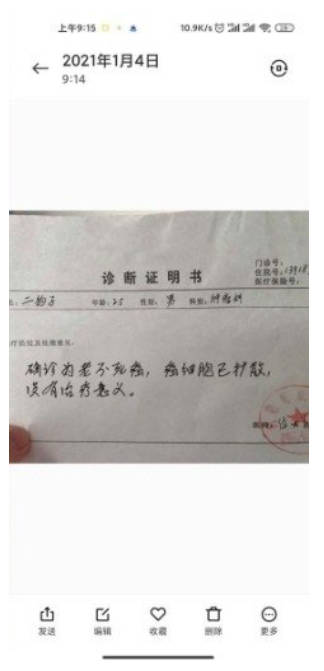 上午9:15 10.9K/s
2021年1月4日
9:14
诊断证明书
门诊号：
住院号：
医疗保险号：
二狗子 年龄：25 性别：男 科别：肿瘤科
确诊为老不死癌，癌细胞已扩散，
没有治疗意义。
医师：
发送 编辑 收藏 删除 更多